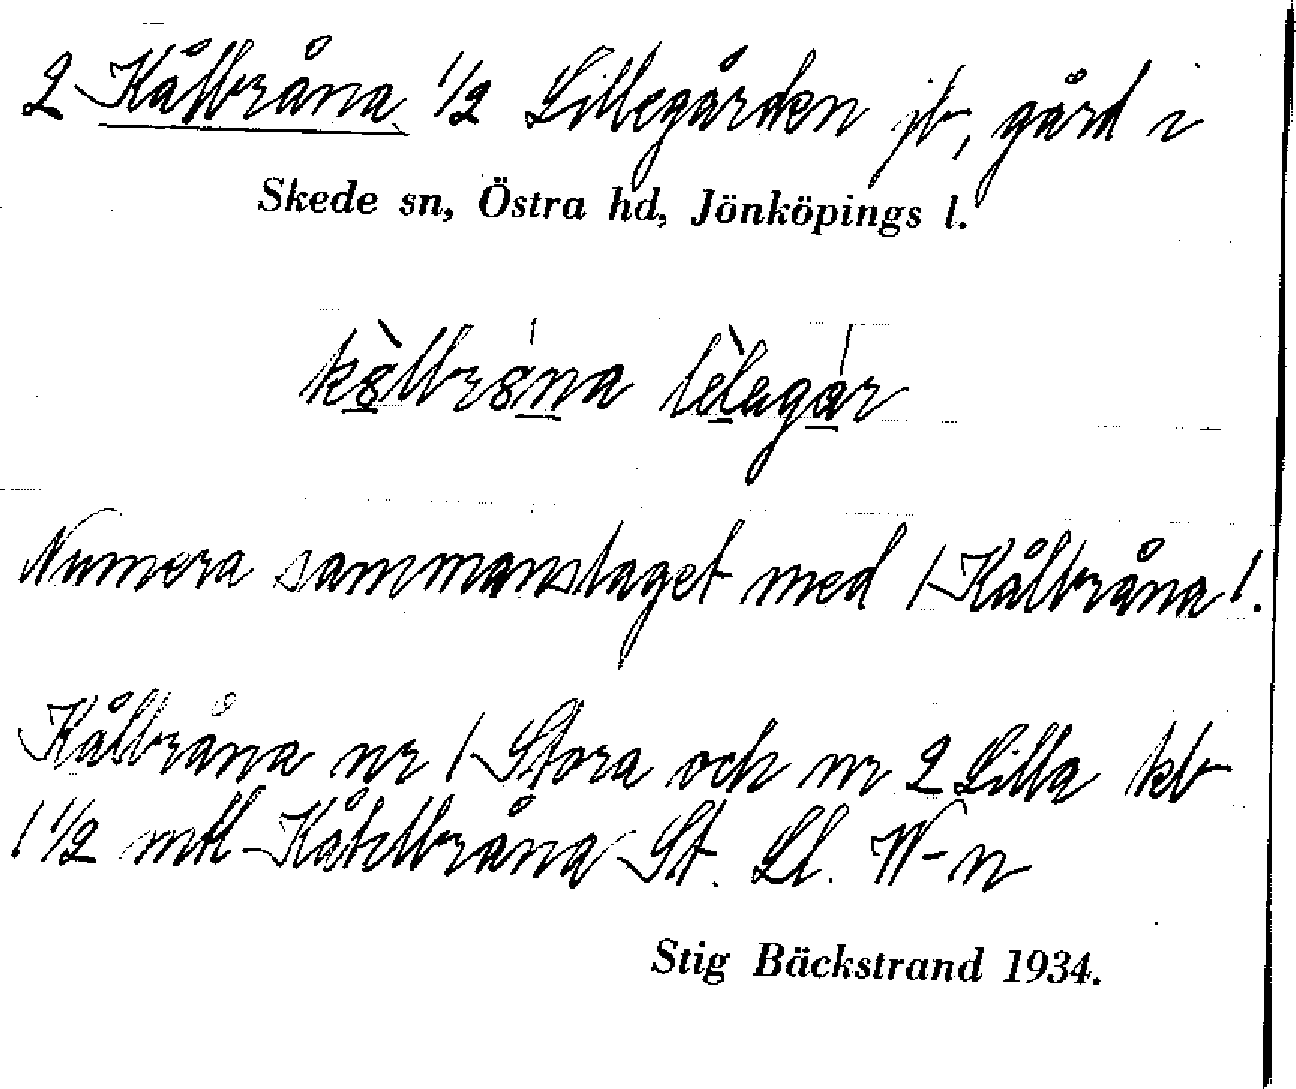 2 Kålbråna 1/2 Lillegården jb, gård i
Skede sn, Östra hd, Jönköpings l.
Numera sammanslaget med 1 Kålbråna 1.
Kålbråna nr 1 Stora och nr 2 Lilla kb
1 1/2 mtl Kåhlbråna St. Ll. W-n
Stig Bäckstrand 1934.